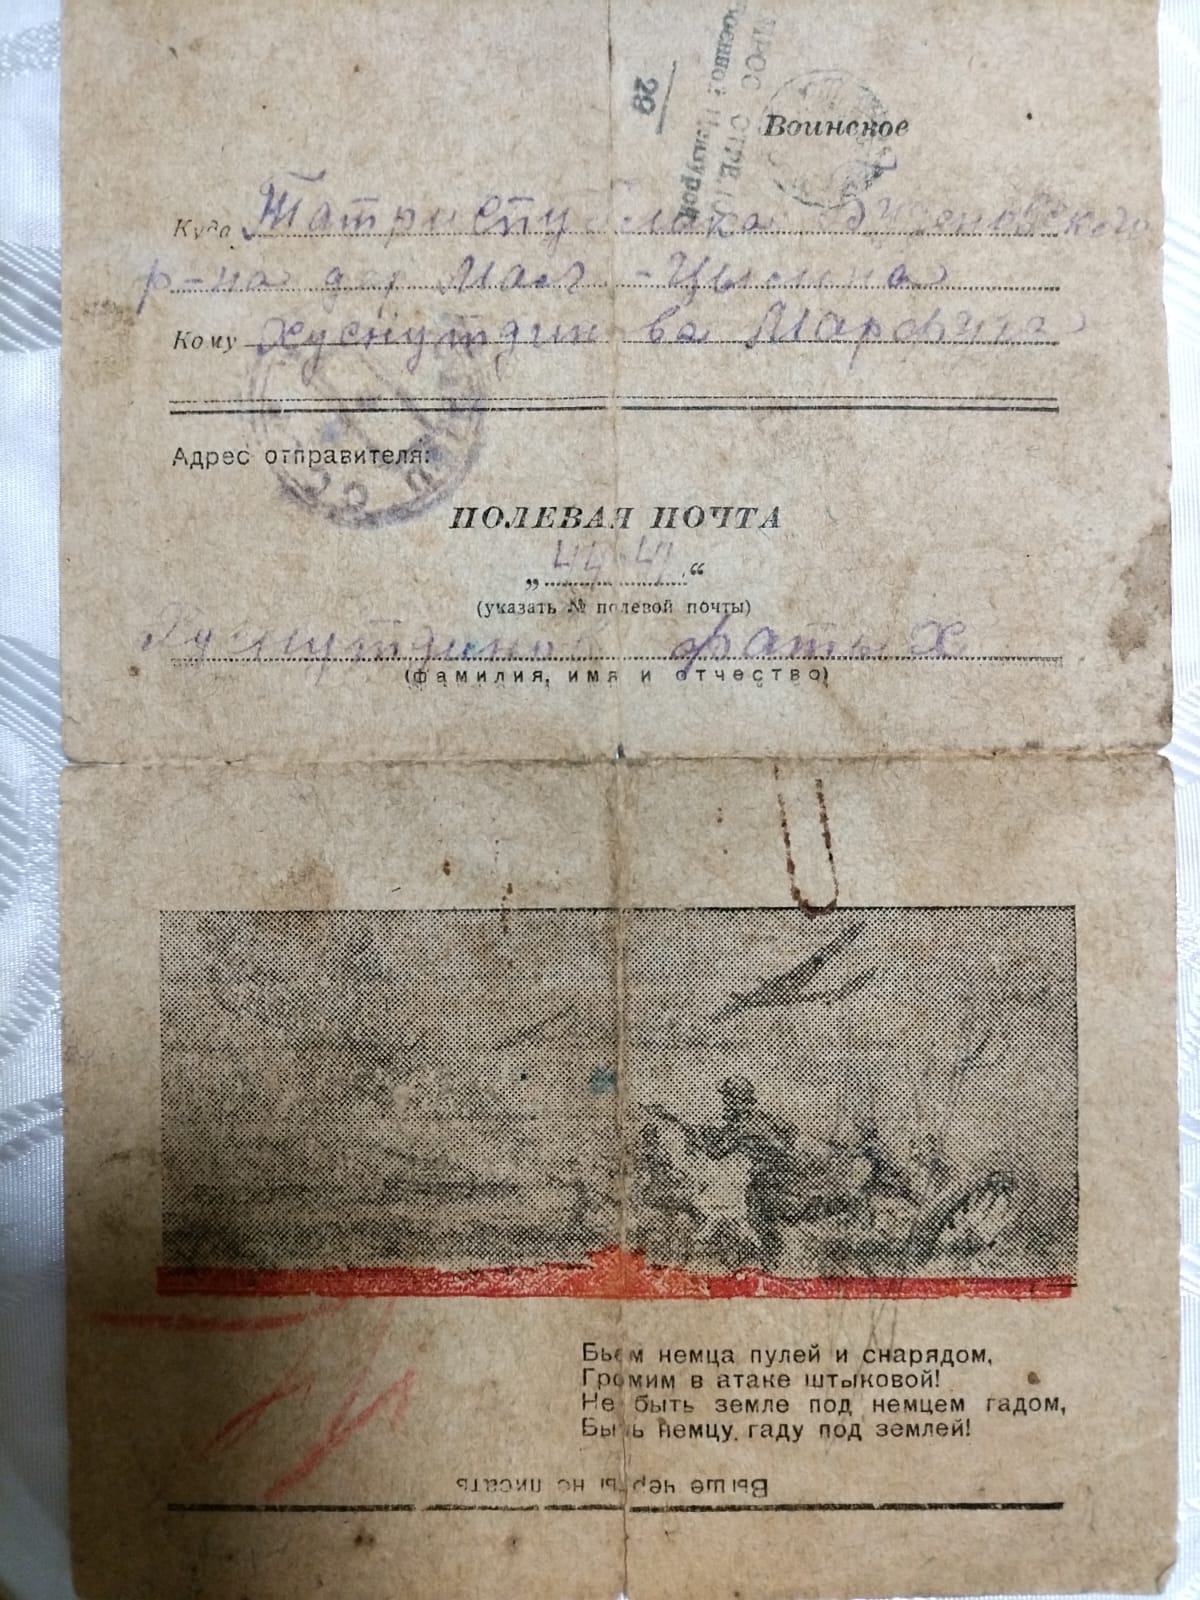 29
Военной Цензурой
Воинское
Куда Татреспублика
р-на дер Мал-Цильна
Кому Хуснутдинова
Адрес отправителя:
ПОЛЕВАЯ ПОЧТА
(указать № полевой почты)
Хуснутдинов Фатых
(фамилия, имя и отчество)
Бьем немца пулей и снарядом,
Громим в атаке штыковой!
Не быть земле под немцем гадом,
Быть немцу, гаду под землей!
Выше черты не писать